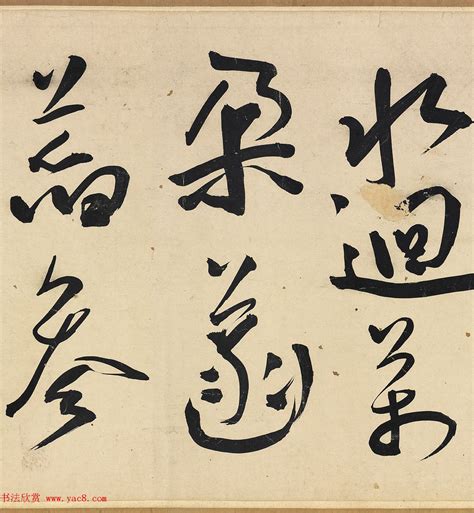 水迴萬
朵菡
萏參
书法欣赏 www.yac8.com